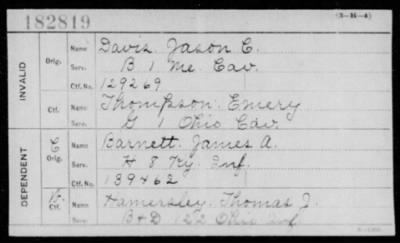 182819
(3-H-4)
INVALID
Orig.
Name Davis, Jason C.
Serv. B 1 Me. Cav.
Ctf. No. 129269
Ctf.
Name Thompson, Emery
Serv. G 1 Ohio Cav.
DEPENDENT
Orig.
Name Barnett, James A.
Serv. H 8 Ky. Inf.
Ctf. No. 139462
Ctf.
Name Hamersley, Thomas J.
Serv. B & D 122 Ohio Inf.